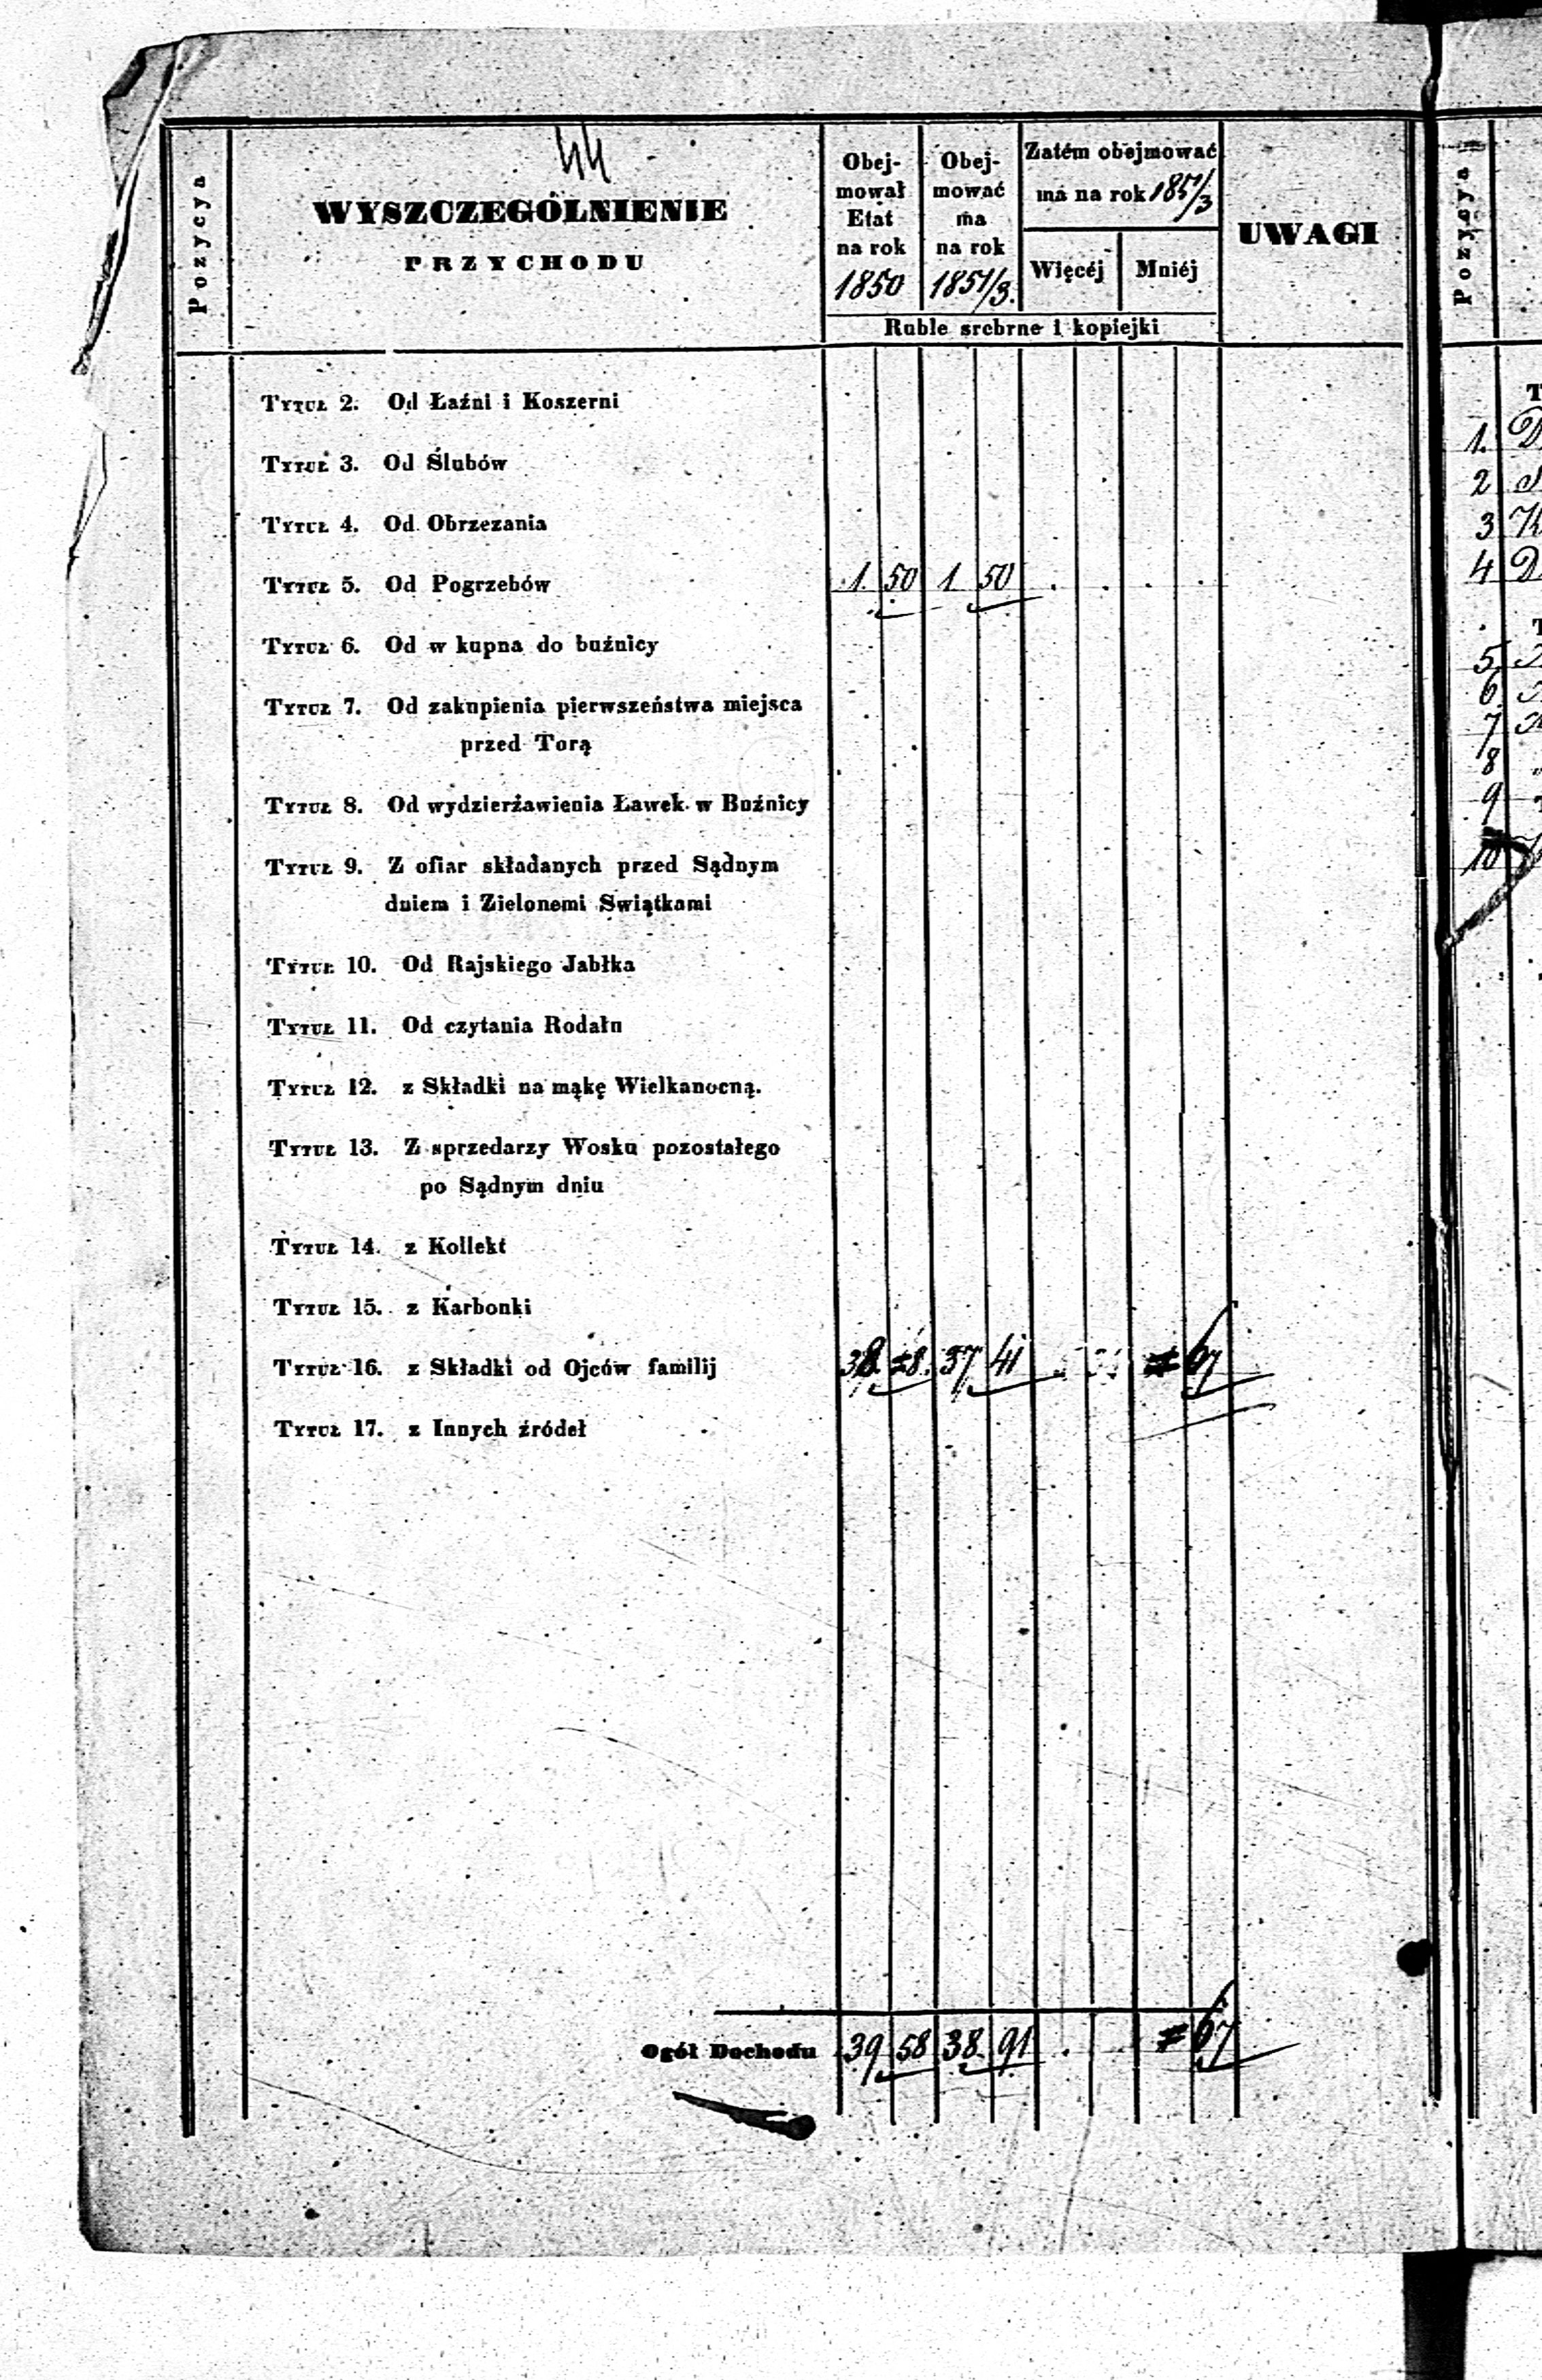 44
Pozycya
WYSZCZEGÓLNIENIE
PRZYCHODU
Obej-
mował
Etat
na rok
1850
Obej-
mować
ma
na rok
1851/3.
Zatém obejmować
ma na rok 1851/3
Więcéj Mniéj
Ruble srebrne i kopiejki
UWAGI
Tytuł 2. Od Łaźni i Koszerni
Tytuł 3. Od Ślubów
Tytuł 4. Od Obrzezania
Tytuł 5. Od Pogrzebów 1. 50 1 50 . . . .
Tytuł 6. Od w kupna do buźnicy
Tytuł 7. Od zakupienia pierwszeństwa miejsca
przed Torą
Tytuł 8. Od wydzierżawienia Ławek w Buźnicy
Tytuł 9. Z ofiar składanych przed Sądnym
dniem i Zielonemi Swiątkami
Tytuł 10. Od Rajskiego Jabłka
Tytuł 11. Od czytania Rodału
Tytuł 12. z Składki na mąkę Wielkanocną.
Tytuł 13. Z sprzedarzy Wosku pozostałego
po Sądnym dniu
Tytuł 14. z Kollekt
Tytuł 15. z Karbonki
Tytuł 16. z Składki od Ojców familij 38. =8. 37 41 = 67
Tytuł 17. z Innych źródeł
Ogół Dochodu 39 58 38. 91 . = 67
Pozycya
1.
2
3
4
5
6
7
8
9
10